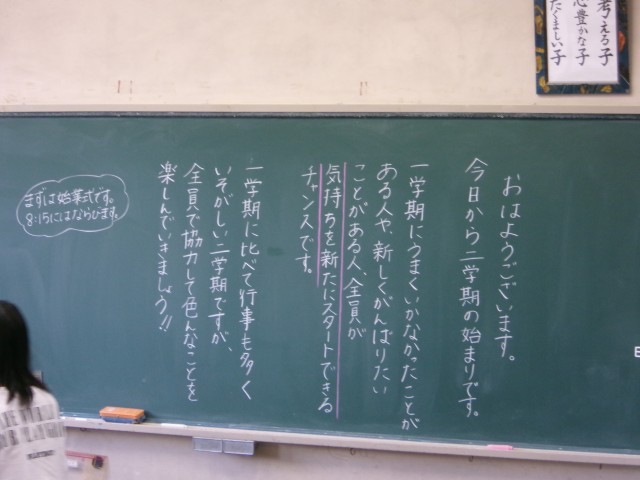 考える子
心豊かな子
たくましい子
おはようございます。
今日から二学期の始まりです。
一学期にうまくいかなかったことが
ある人や、新しくがんばりたい
ことがある人、全員が
気持ちを新たにスタートできる
チャンスです。
一学期に比べて行事も多く
いそがしい二学期ですが、
全員で協力して色んなことを
楽しんでいきましょう!!
まずは始業式です。
8:15にはならびます。